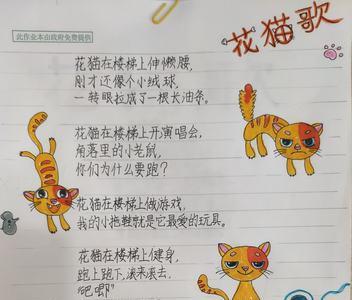 此作业本由政府免费提供
花猫歌
花猫在楼梯上伸懒腰,
刚才还像个小绒球,
一转眼拉成了一根长油条。
花猫在楼梯上开演唱会,
角落里的小老鼠,
你们为什么要跑?
花猫在楼梯上做游戏,
我的小拖鞋就是它最爱的玩具。
花猫在楼梯上健身,
跑上跑下,滚来滚去,
"吧唧"